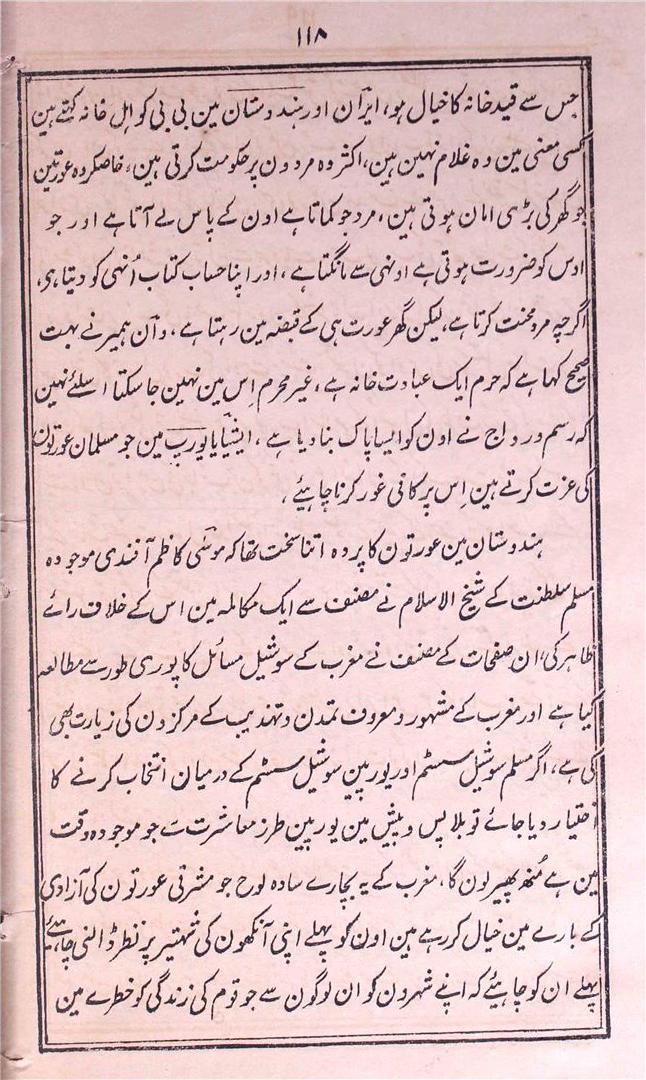 ۱۱۸
جس سے قیدخانہ کا خیال ہو، ایران اور ہندوستان مین بی بی کو اہل خانہ کہتے ہین
کسی معنی مین وہ غلام نہین ہین، اکثر وہ مردون پر حکومت کرتی ہین، خاصکر وہ عورتین
جو گھر کی بڑی امان ہوتی ہین، مرد جو کماتا ہے اون کے پاس لے آتا ہے اور جو
اوس کو ضرورت ہوتی ہے اونہی سے مانگتا ہے، اور اپنا حساب کتاب اُنہی کو دیتا ہی،
اگرچہ مرد محنت کرتا ہے، لیکن گھر عورت ہی کے قبضہ مین رہتا ہے، وان ہمیر نے بہت
صحیح کہا ہے کہ حرم ایک عبادت خانہ ہے، غیر محرم اِس مین نہین جا سکتا اسلئے نہین
کہ رسم و رواج نے اون کو ایسا پاک بنا دیا ہے، ایشیا یا یورپ مین جو مسلمان عورتون
کی عزت کرتے ہین اِس پر کافی غور کرنا چاہیئے،
ہندوستان مین عورتون کا پردہ اتنا سخت تھا کہ موسٰی کاظم آفندی موجودہ
مسلم سلطنت کے شیخ الاسلام نے مصنف سے ایک مکالمہ مین اس کے خلاف رائے
ظاہر کی، ان صفحات کے مصنف نے مغرب کے سوشیل مسائل کا پوری طور سے مطالعہ
کیا ہے اور مغرب کے مشہور و معروف تمدن و تہذیب کے مرکزون کی زیارت بھی
کی ہے، اگر مسلم سوشیل سسٹم اور یورپین سوشیل سسٹم کے درمیان انتخاب کرنے کا
اختیار دیا جائے تو بلا پس و پیش مین یورپین طرز معاشرت سے جو موجودہ وقت
مین ہے مُنھ پھیر لون گا، مغرب کے یہ بچارے سادہ لوح جو مشرقی عورتون کی آزادی
کے بارے مین خیال کر رہے ہین اون کو پہلے اپنی آنکھون کی شہتیر پر نظر ڈالنی چاہیئے
پہلے ان کو چاہیئے کہ اپنے شہرون کو ان لوگون سے جو قوم کی زندگی کو خطرے مین